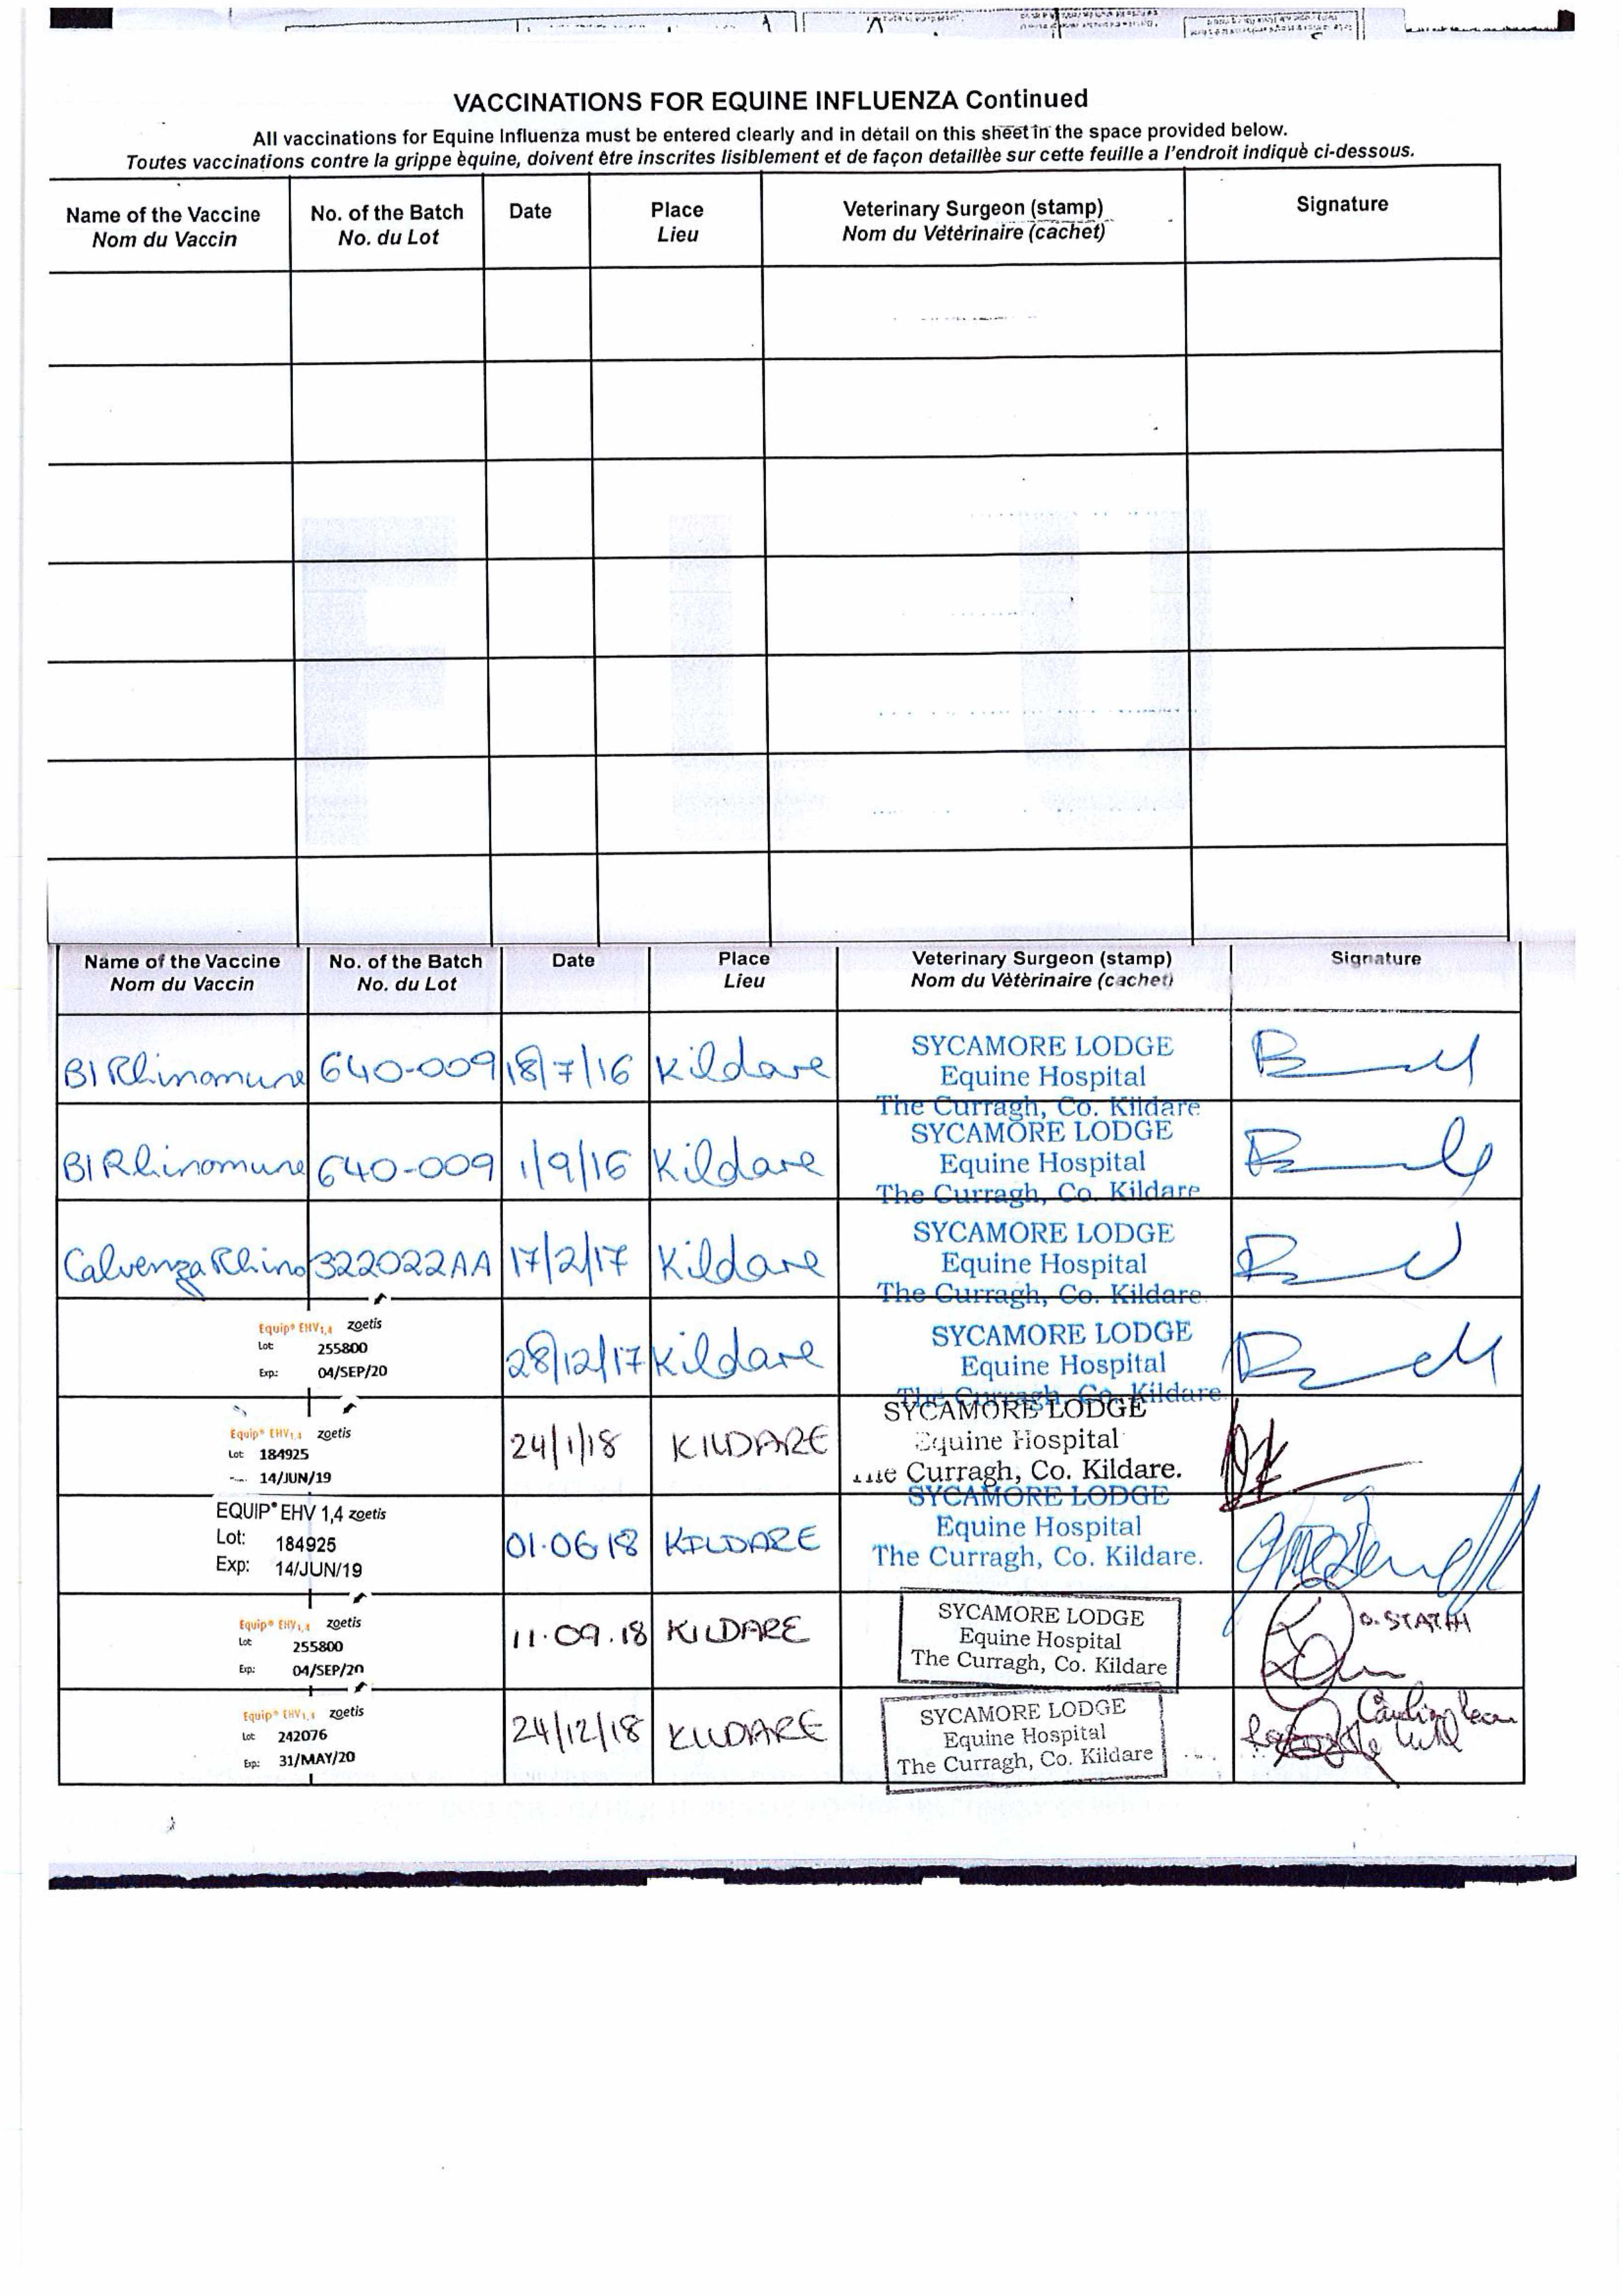 VACCINATIONS FOR EQUINE INFLUENZA Continued
All vaccinations for Equine Influenza must be entered clearly and in detail on this sheet in the space provided below.
Toutes vaccinations contre la grippe èquine, doivent être inscrites lisiblement et de façon detaillèe sur cette feuille a l'endroit indiquè ci-dessous.
Name of the Vaccine No. of the Batch Date Place Veterinary Surgeon (stamp) Signature
Nom du Vaccin No. du Lot Lieu Nom du Vètèrinaire (cachet)
FLU
Name of the Vaccine No. of the Batch Date Place Veterinary Surgeon (stamp) Signature
Nom du Vaccin No. du Lot Lieu Nom du Vètèrinaire (cachet)
BI Rhinomune 640-009 18/7/16 Kildare
SYCAMORE LODGE
Equine Hospital
The Curragh, Co. Kildare
BI Rhinomune 640-009 1/9/16 Kildare
SYCAMORE LODGE
Equine Hospital
The Curragh, Co. Kildare
Calvenza Rhino 322022AA 17/2/17 Kildare
SYCAMORE LODGE
Equine Hospital
The Curragh, Co. Kildare.
Equip® EHV1,4 zoetis
Lot: 255800
Exp: 04/SEP/20
28/12/17 Kildare
SYCAMORE LODGE
Equine Hospital
The Curragh, Co. Kildare.
Equip® EHV1,4 zoetis
Lot: 184925
14/JUN/19
24/1/18 KILDARE
SYCAMORE LODGE
Equine Hospital
Curragh, Co. Kildare.
EQUIP® EHV 1,4 zoetis
Lot: 184925
Exp: 14/JUN/19
01.06 18 KILDARE
SYCAMORE LODGE
Equine Hospital
The Curragh, Co. Kildare.
Equip® EHV1,4 zoetis
Lot: 255800
Exp: 04/SEP/20
11.09.18 KILDARE
SYCAMORE LODGE
Equine Hospital
The Curragh, Co. Kildare
Equip® EHV1,4 zoetis
Lot: 242076
Exp: 31/MAY/20
24/12/18 KILDARE
SYCAMORE LODGE
Equine Hospital
The Curragh, Co. Kildare